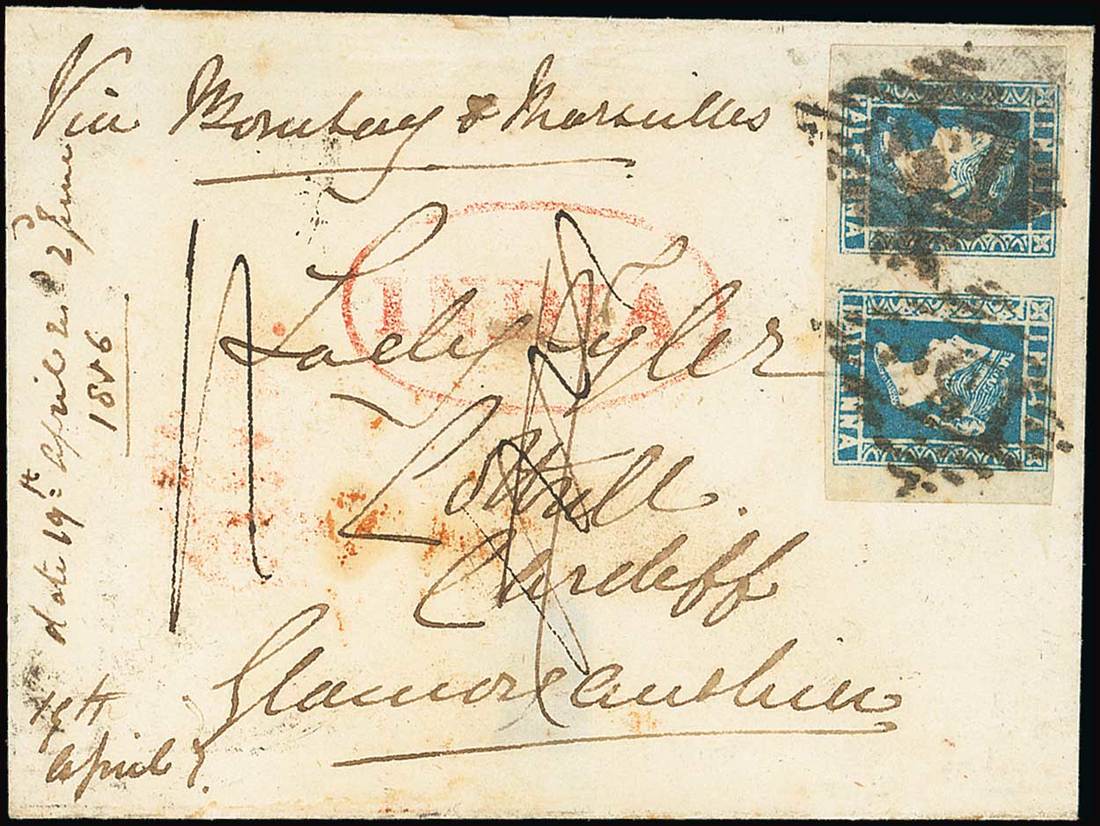 Via Bombay & Marseilles
INDIA
Lady Tyler
Cottrell
Cardiff
Glamorganshire
date 19th April recd 2 June
1856
19th
April
INDIA
HALF ANNA
INDIA
HALF ANNA